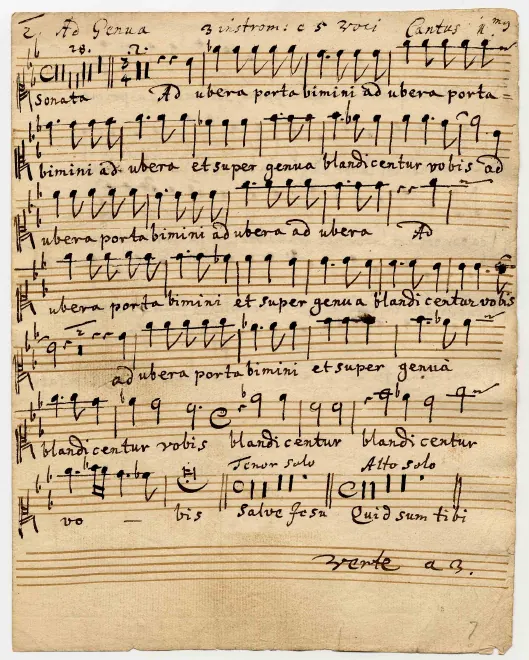 2. Ad Genua 3 instrom: e 5 Voci Cantus
28. 2.
Sonata Ad ubera porta bimini ad ubera porta -
bimini ad ubera et super genua blandicentur vobis ad
ubera porta bimini ad ubera ad ubera Ad
ubera porta bimini et super genua blandicentur vobis
2
ad ubera porta bimini et super genua
blandicentur vobis blandicentur blandicentur
Tenor solo Alto solo
vo — bis Salve Jesu Quid sum tibi
verte a 3.
7